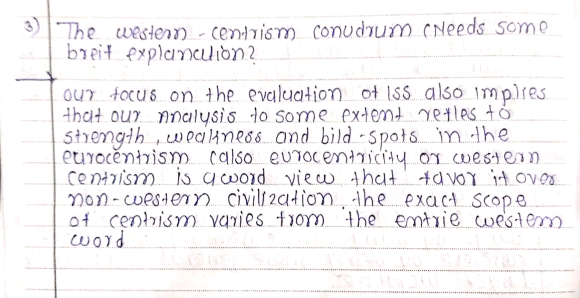 3) The western - centrism conudrum (Needs some
breif explanation?
our focus on the evaluation of Iss also implies
that our Analysis to some extent refles to
strength, weakness and bild-spots in the
eurocentrism (also eurocentricity or western
centrism is a word view that favor it over
non-western civilization. the exact scope
of centrism varies from the entrie western
word